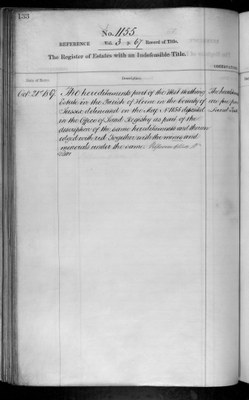 133
No. 1155.
REFERENCE Vol. 3 p. 67 Record of Title.
The Register of Estates with an Indefeasible Title.
Date of Entry. Description.
Oct. 21st 67. The hereditaments part of the West
Estate in the Parish of in the County of
Sussex delineated on the Map No. 1155 deposited
in the Office of Land Registry as part of the
description of the same hereditaments and thereon
edged with red Together with the mines and
minerals under the same